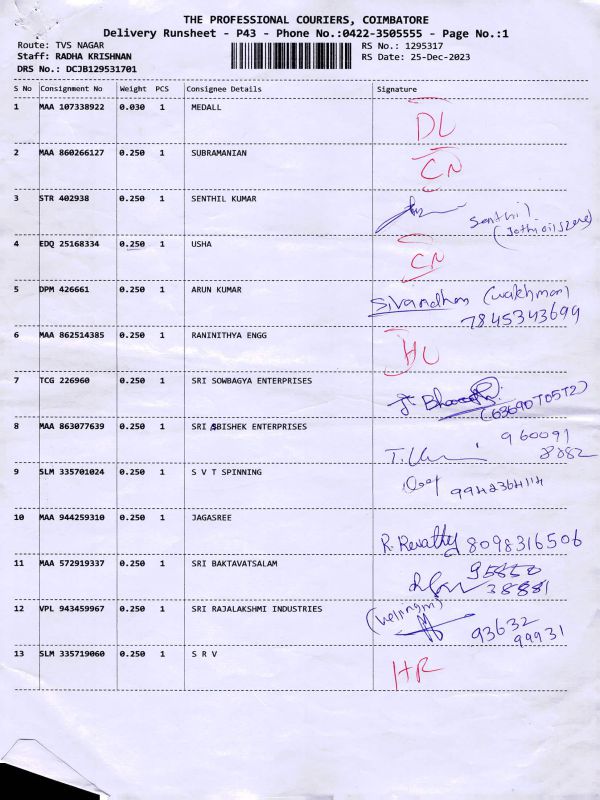 THE PROFESSIONAL COURIERS, COIMBATORE
Delivery Runsheet - P43 - Phone No.:0422-3505555 - Page No.:1
Route: TVS NAGAR RS No.: 1295317
Staff: RADHA KRISHNAN RS Date: 25-Dec-2023
DRS No.: DCJB129531701
S No Consignment No Weight PCS Consignee Details Signature
1 MAA 107338922 0.030 1 MEDALL
DL
2 MAA 860266127 0.250 1 SUBRAMANIAN
CN
3 STR 402938 0.250 1 SENTHIL KUMAR
Senthil
4 EDQ 25168334 0.250 1 USHA
CN
5 DPM 426661 0.250 1 ARUN KUMAR
Sivandhan (watchman)
7845343699
6 MAA 862514385 0.250 1 RANINITHYA ENGG
HU
7 TCG 226960 0.250 1 SRI SOWBAGYA ENTERPRISES
8 MAA 863077639 0.250 1 SRI ABISHEK ENTERPRISES
960091
8882
9 SLM 335701024 0.250 1 S V T SPINNING
9942364114
10 MAA 944259310 0.250 1 JAGASREE
R. Revathy 8098316506
11 MAA 572919337 0.250 1 SRI BAKTAVATSALAM
38881
12 VPL 943459967 0.250 1 SRI RAJALAKSHMI INDUSTRIES
93632
99931
13 SLM 335719060 0.250 1 S R V
HR